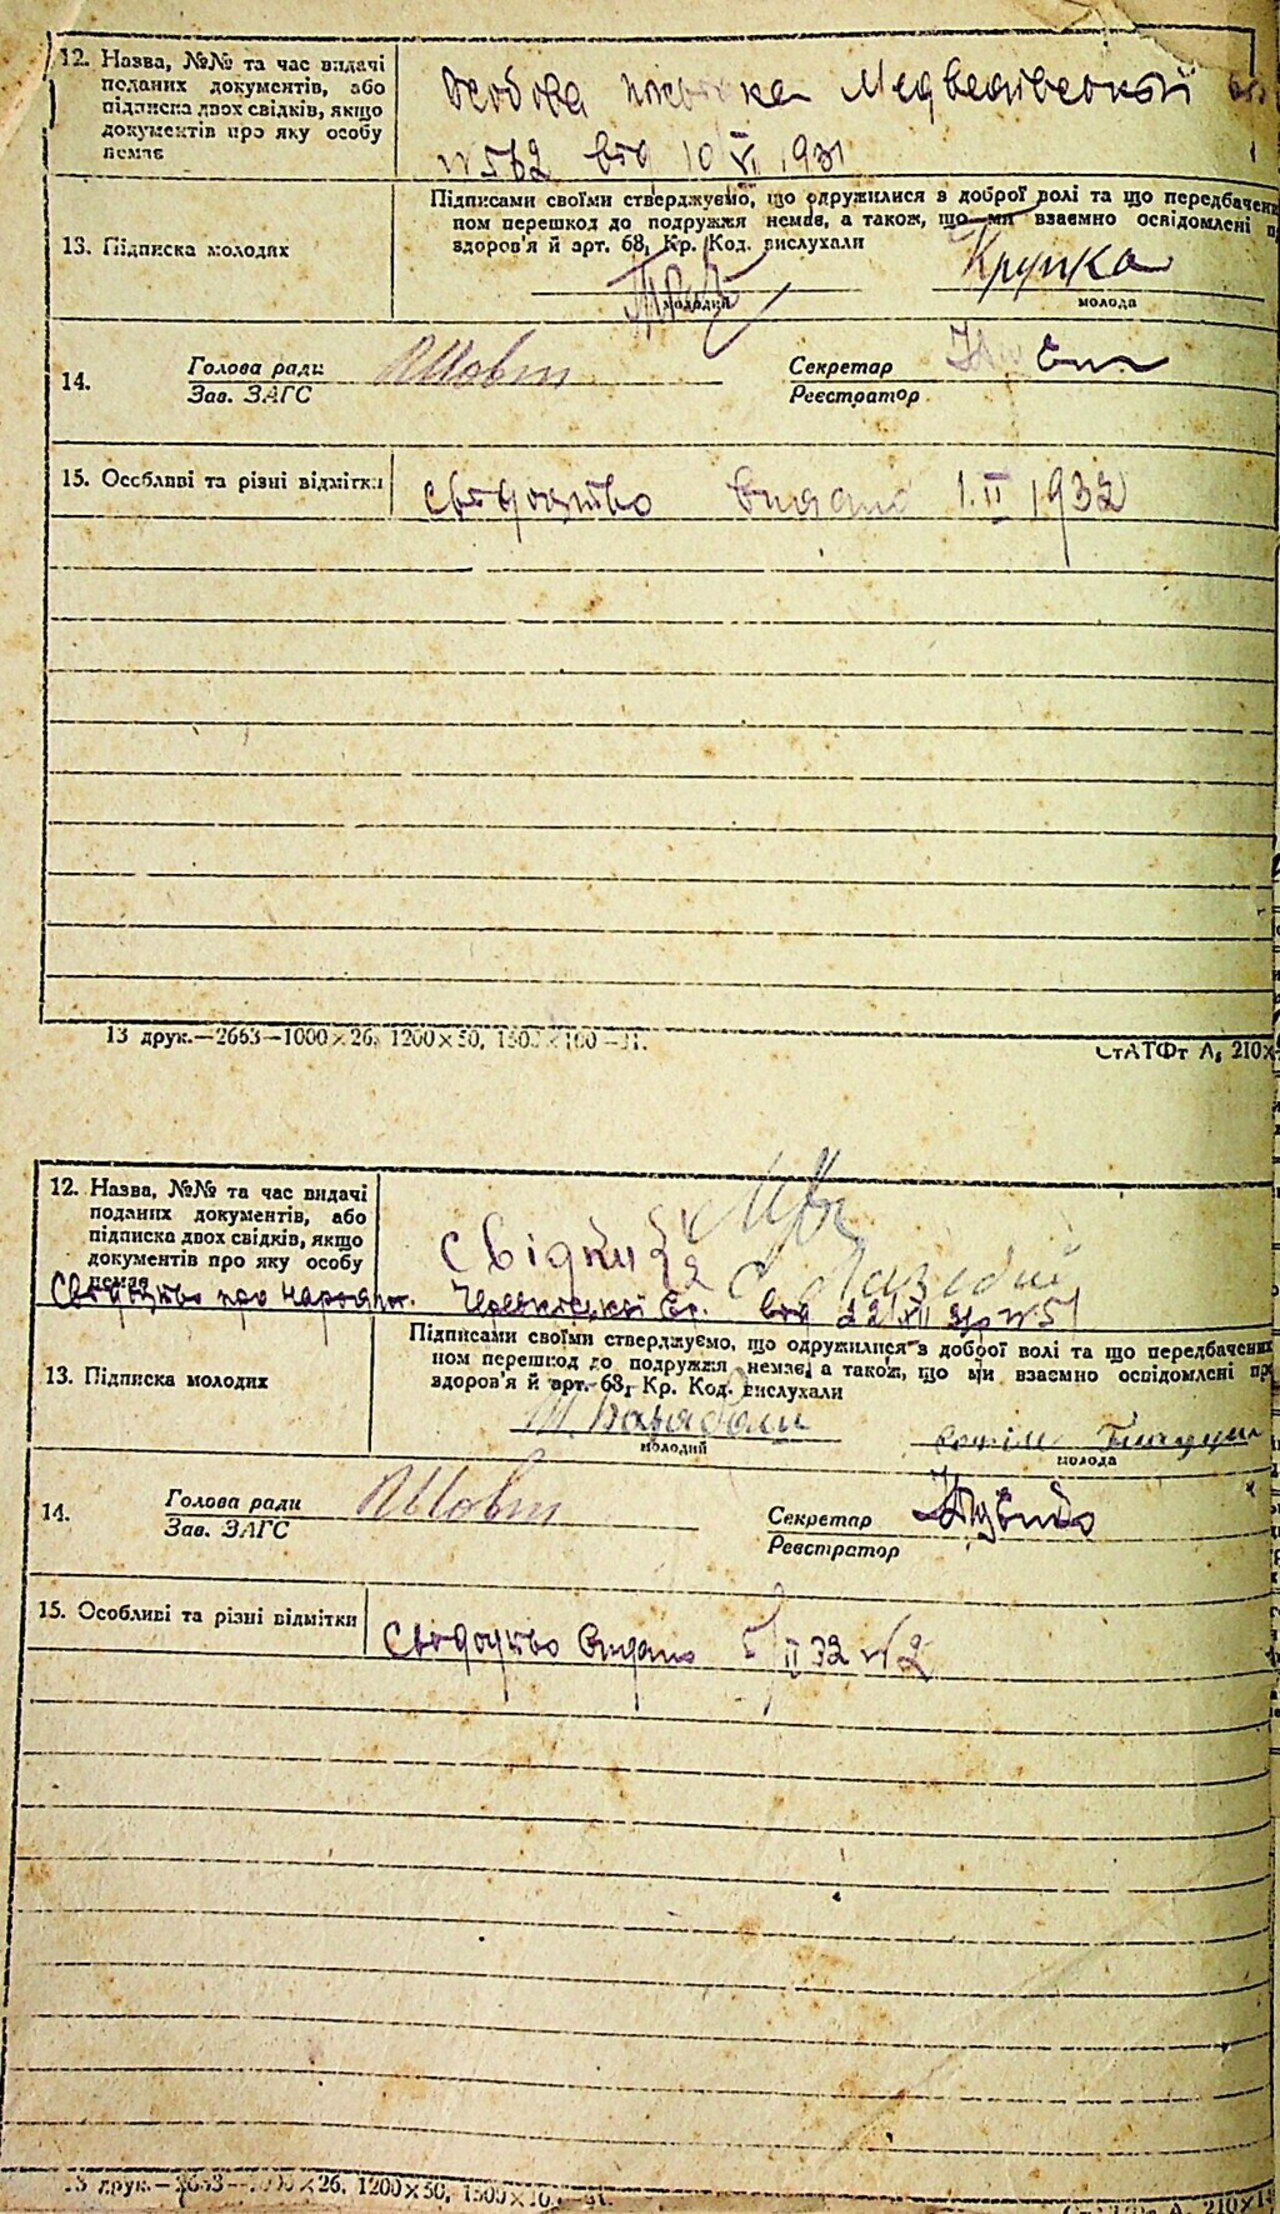 12. Назва, №№ та час видачі
поданих документів, або
підписка двох свідків, якщо
документів про яку особу
немає
Особова посвідка Медведівської
№ 562 від 10 VI 1931
13. Підписка молодих
Підписами своїми стверджуємо, що одружилися з доброї волі та що передбачен
ном перешкод до подружжя немає, а також, що ми взаємно освідомлені п
здоров'я й арт. 68, Кр. Код. вислухали
молодий
Крупка
молода
14.
Голова ради
Зав. ЗАГС
Секретар
Реєстратор
15. Особливі та різні відмітки
свідоцтво видано 1. II 1932
13 друк.—2663—1000×26, 1200×50, 1500×100—31.
СтАТФт А, 210×
12. Назва, №№ та час видачі
поданих документів, або
підписка двох свідків, якщо
документів про яку особу
немає
Свідки 1
2
Свідоцтво про народж. від 22/XII 31р №51
13. Підписка молодих
Підписами своїми стверджуємо, що одружилися з доброї волі та що передбачених
ном перешкод до подружжя немає, а також, що ми взаємно освідомлені пр
здоров'я й арт. 68, Кр. Код. вислухали
молодий
молода
14.
Голова ради
Зав. ЗАГС
Секретар
Реєстратор
15. Особливі та різні відмітки
Свідоцтво видано 5/II 32 №2
13 друк.—2663—1000×26, 1200×50, 1500×100—31.
А, 210×1